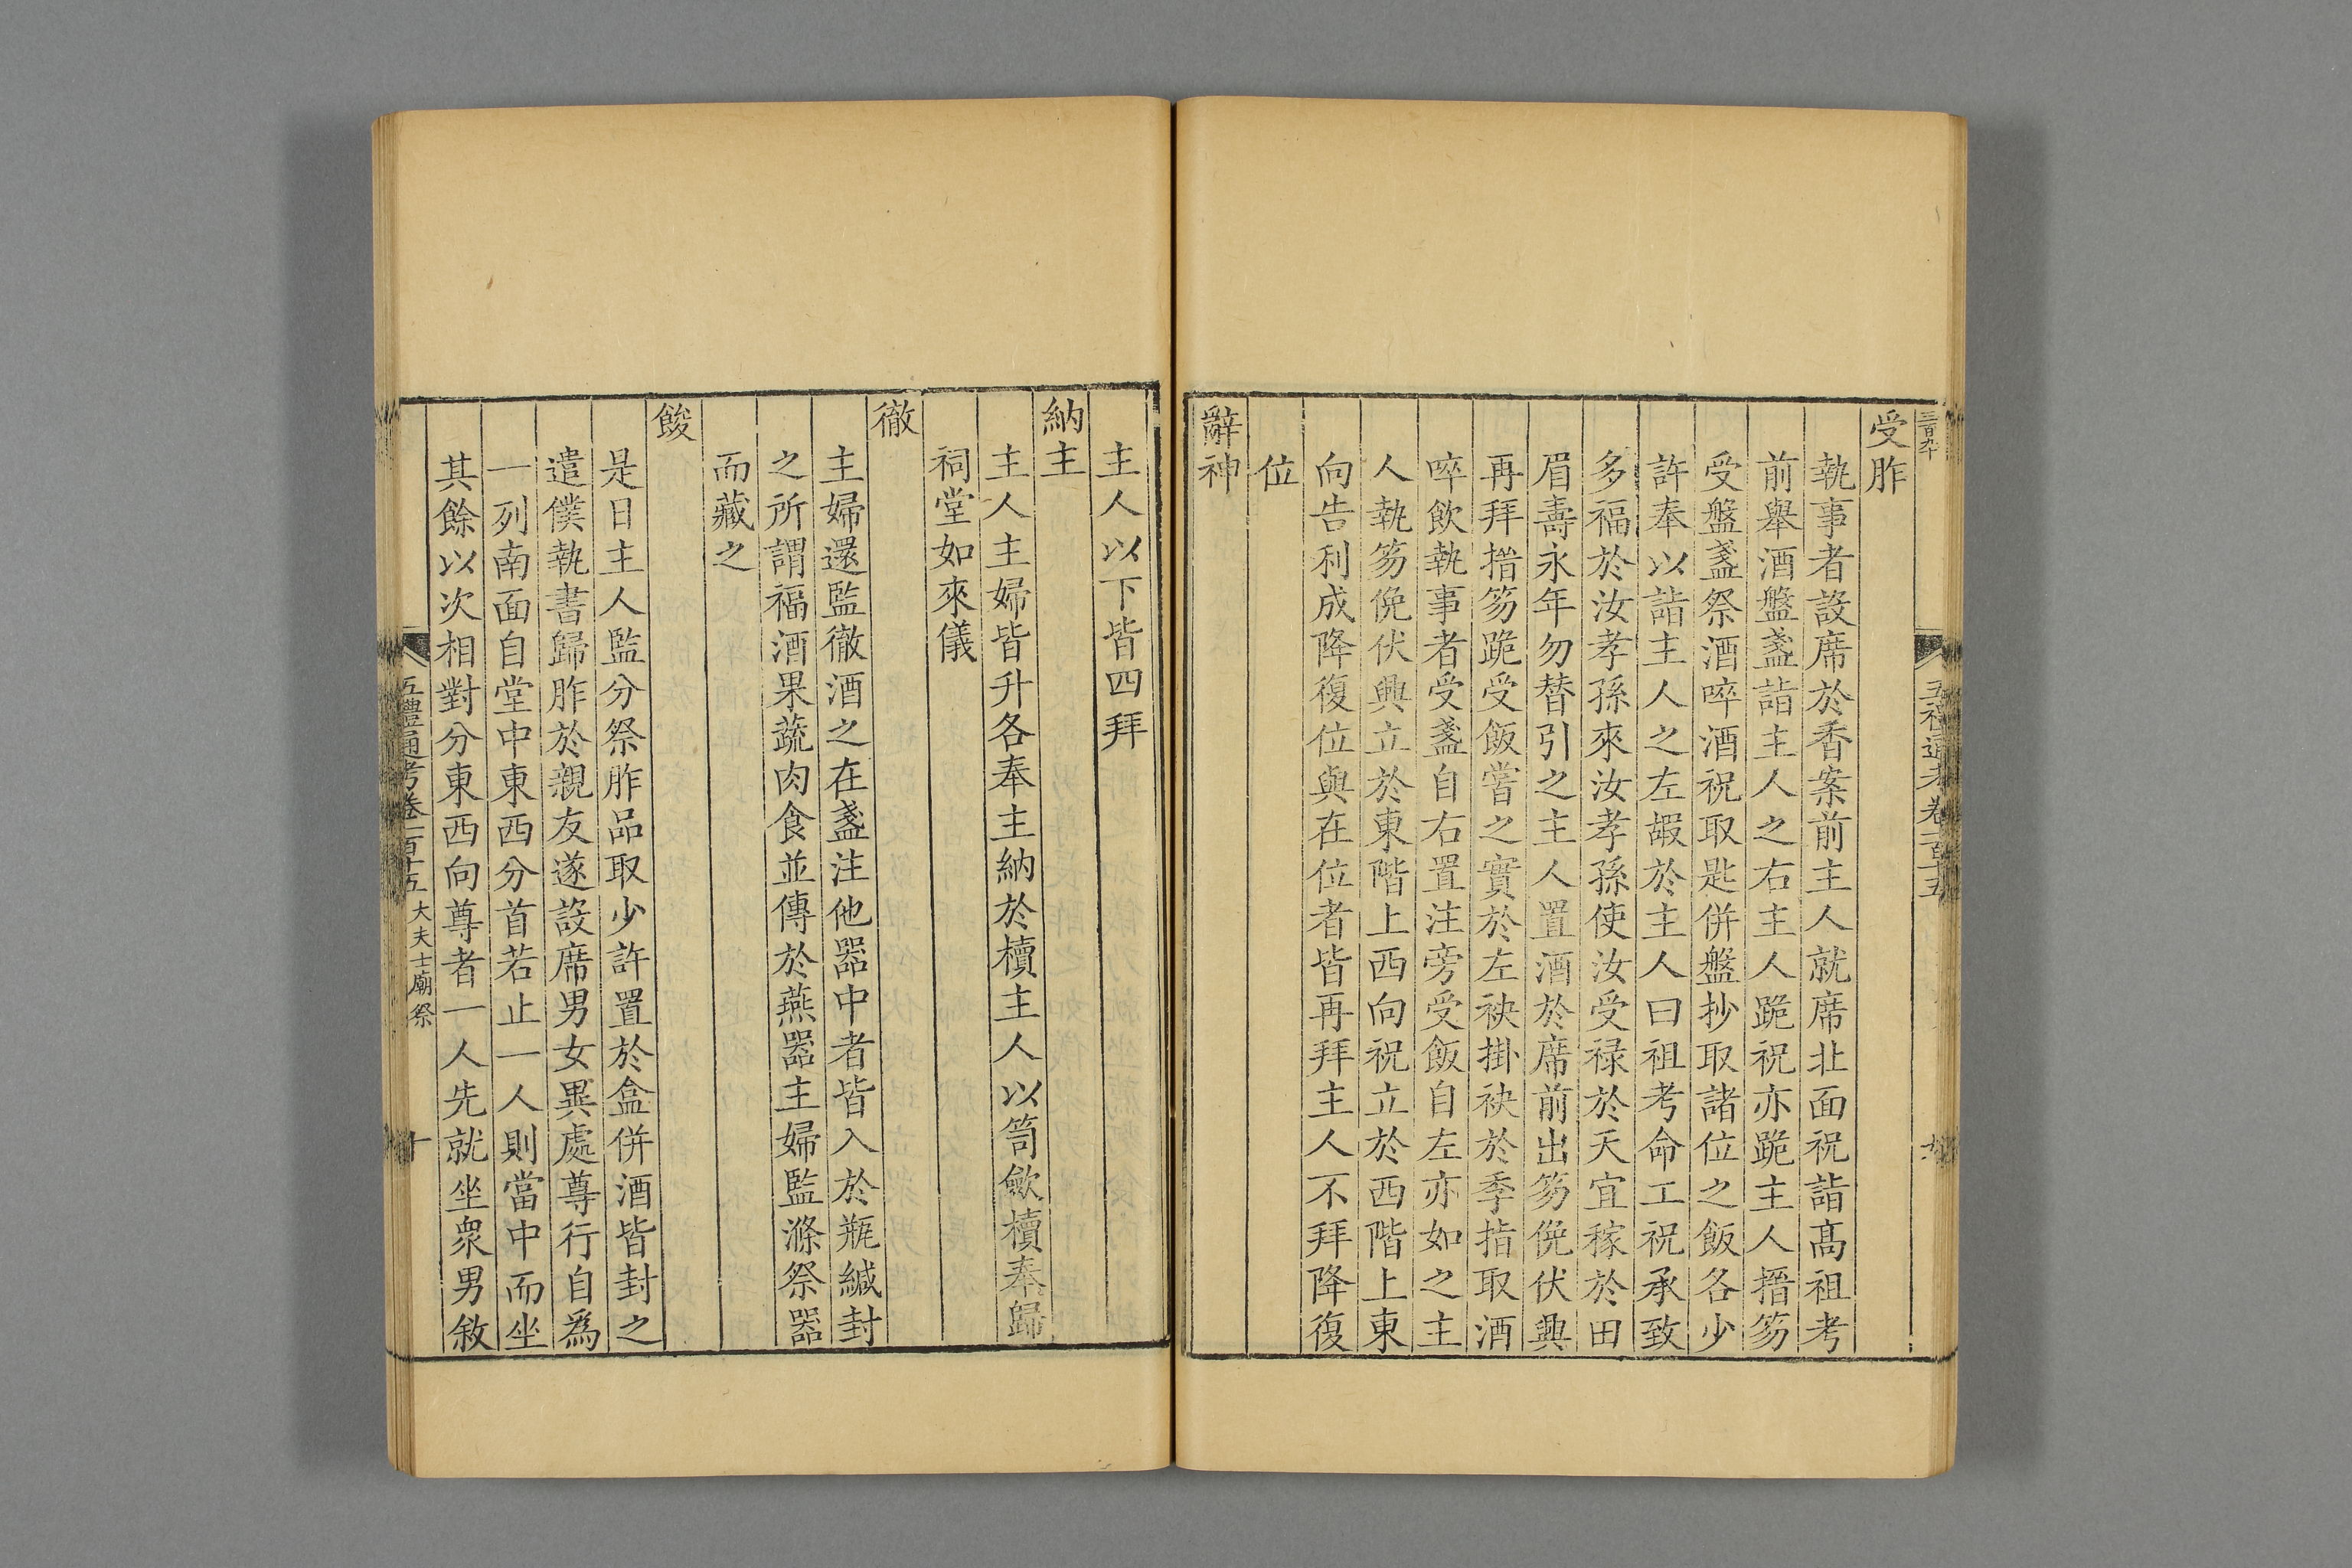 受胙
執事者設席於香案前主人就席北面祝詣高祖考
前舉酒盤盞詣主人之右主人跪祝亦跪主人搢笏
受盤盞祭酒啐酒祝取匙併盤抄取諸位之飯各少
許奉以詣主人之左嘏於主人曰祖考命工祝承致
多福於汝孝孫來汝孝孫使汝受禄於天宜稼於田
眉壽永年勿替引之主人置酒於席前出笏俛伏興
再拜搢笏跪受飯嘗之實於左袂掛袂於季指取酒
啐飲執事者受盞自右置注旁受飯自左亦如之主
人執笏俛伏興立於東階上西向祝立於西階上東
向告利成降復位與在位者皆再拜主人不拜降復
位
辭神
主人以下皆四拜
納主
主人主婦皆升各奉主納於櫝主人以笥斂櫝奉歸
祠堂如來儀
徹
主婦還監徹酒之在盞注他器中者皆入於瓶緘封
之所謂福酒果蔬肉食並傳於燕器主婦監滌祭器
而藏之
餕
是日主人監分祭胙品取少許置於盒併酒皆封之
遣僕執書歸胙於親友遂設席男女異處尊行自為
一列南面自堂中東西分首若止一人則當中而坐
其餘以次相對分東西向尊者一人先就坐衆男敘
五禮通考卷一百十五 大夫士廟祭 十